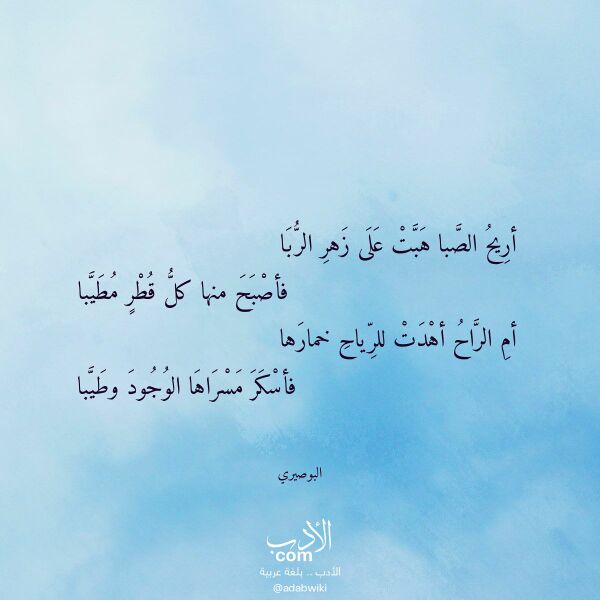 أرِيحُ الصَّبا هَبَّتْ عَلَى زَهرِ الرُّبَا
فأصْبَحَ منها كلُّ قُطْرٍ مُطَيَّبا
أمِ الرَّاحُ أهْدَتْ للرِّياحِ خمارَها
فأسْكَرَ مَسْرَاهَا الوُجُودَ وطَيَّبا
البوصيري
الأدب
com
الأدب .. بلغة عربية
@adabwiki